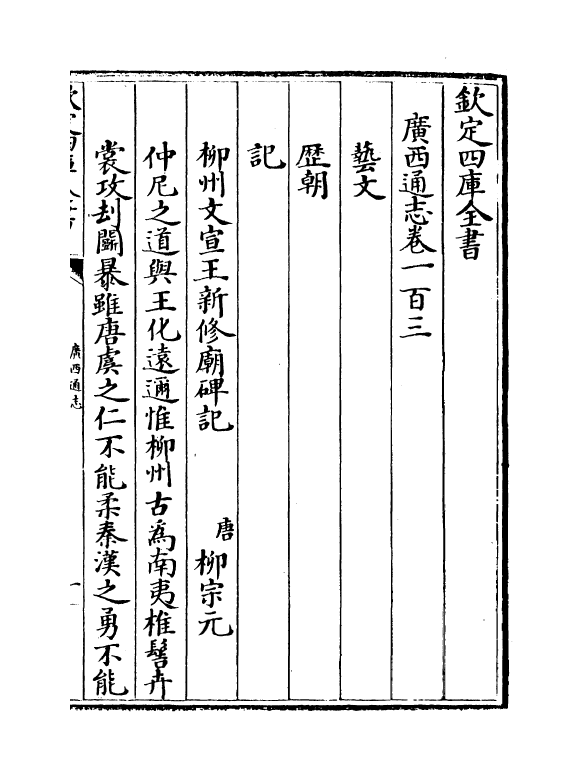 欽定四庫全書
廣西通志卷一百三
藝文
歷朝
記
柳州文宣王新修廟碑記 唐 柳宗元
仲尼之道與王化遠邇惟柳州古為南夷椎髻卉
裳攻刦鬭暴雖唐虞之仁不能柔秦漢之勇不能
廣西通志
一